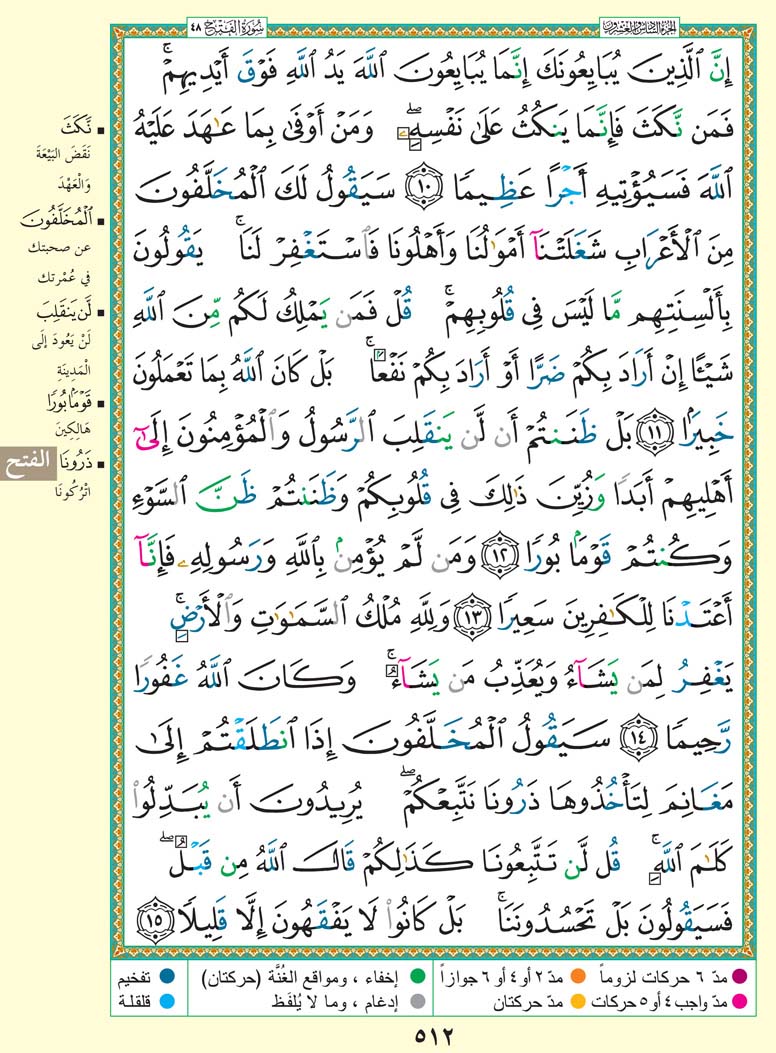 سُورَةُ الفَتْحِ ٤٨
الجزء السادس والعشرون
إِنَّ ٱلَّذِينَ يُبَايِعُونَكَ إِنَّمَا يُبَايِعُونَ ٱللَّهَ يَدُ ٱللَّهِ فَوْقَ أَيْدِيهِمْ ۚ
فَمَن نَّكَثَ فَإِنَّمَا يَنكُثُ عَلَىٰ نَفْسِهِۦ ۖ وَمَنْ أَوْفَىٰ بِمَا عَـٰهَدَ عَلَيْهُ
ٱللَّهَ فَسَيُؤْتِيهِ أَجْرًا عَظِيمًا ١٠ سَيَقُولُ لَكَ ٱلْمُخَلَّفُونَ
مِنَ ٱلْأَعْرَابِ شَغَلَتْنَآ أَمْوَٰلُنَا وَأَهْلُونَا فَٱسْتَغْفِرْ لَنَا ۚ يَقُولُونَ
بِأَلْسِنَتِهِم مَّا لَيْسَ فِى قُلُوبِهِمْ ۚ قُلْ فَمَن يَمْلِكُ لَكُم مِّنَ ٱللَّهِ
شَيْـًٔا إِنْ أَرَادَ بِكُمْ ضَرًّا أَوْ أَرَادَ بِكُمْ نَفْعًۢا ۚ بَلْ كَانَ ٱللَّهُ بِمَا تَعْمَلُونَ
خَبِيرًۢا ١١ بَلْ ظَنَنتُمْ أَن لَّن يَنقَلِبَ ٱلرَّسُولُ وَٱلْمُؤْمِنُونَ إِلَىٰٓ
أَهْلِيهِمْ أَبَدًا وَزُيِّنَ ذَٰلِكَ فِى قُلُوبِكُمْ وَظَنَنتُمْ ظَنَّ ٱلسَّوْءِ
وَكُنتُمْ قَوْمًۢا بُورًا ١٢ وَمَن لَّمْ يُؤْمِنۢ بِٱللَّهِ وَرَسُولِهِۦ فَإِنَّآ
أَعْتَدْنَا لِلْكَـٰفِرِينَ سَعِيرًا ١٣ وَلِلَّهِ مُلْكُ ٱلسَّمَـٰوَٰتِ وَٱلْأَرْضِ ۚ
يَغْفِرُ لِمَن يَشَآءُ وَيُعَذِّبُ مَن يَشَآءُ ۚ وَكَانَ ٱللَّهُ غَفُورًا
رَّحِيمًا ١٤ سَيَقُولُ ٱلْمُخَلَّفُونَ إِذَا ٱنطَلَقْتُمْ إِلَىٰ
مَغَانِمَ لِتَأْخُذُوهَا ذَرُونَا نَتَّبِعْكُمْ ۖ يُرِيدُونَ أَن يُبَدِّلُوا۟
كَلَـٰمَ ٱللَّهِ ۚ قُل لَّن تَتَّبِعُونَا كَذَٰلِكُمْ قَالَ ٱللَّهُ مِن قَبْلُ ۖ
فَسَيَقُولُونَ بَلْ تَحْسُدُونَنَا ۚ بَلْ كَانُوا۟ لَا يَفْقَهُونَ إِلَّا قَلِيلًا ١٥
▪ نَّكَثَ
نَقَضَ البَيْعَةَ
وَالْعَهْدَ
▪ ٱلْمُخَلَّفُونَ
عن صحبتك
في عُمْرتك
▪ لَّن يَنقَلِبَ
لَنْ يَعُودَ إلَى
الْمَدِينَةِ
▪ قَوْمًۢا بُورًا
هَالِكِينَ
▪ ذَرُونَا
اتْرُكُونَا
الفتح
مدّ ٦ حركات لزوماً
مدّ ٢ أو ٤ أو ٦ جوازاً
إخفاء ، ومواقع الغُنَّة (حركتان)
تفخيم
مدّ واجب ٤ أو ٥ حركات
مدّ حركتان
إدغام ، وما لا يُلفَظ
قلقلة
٥١٢